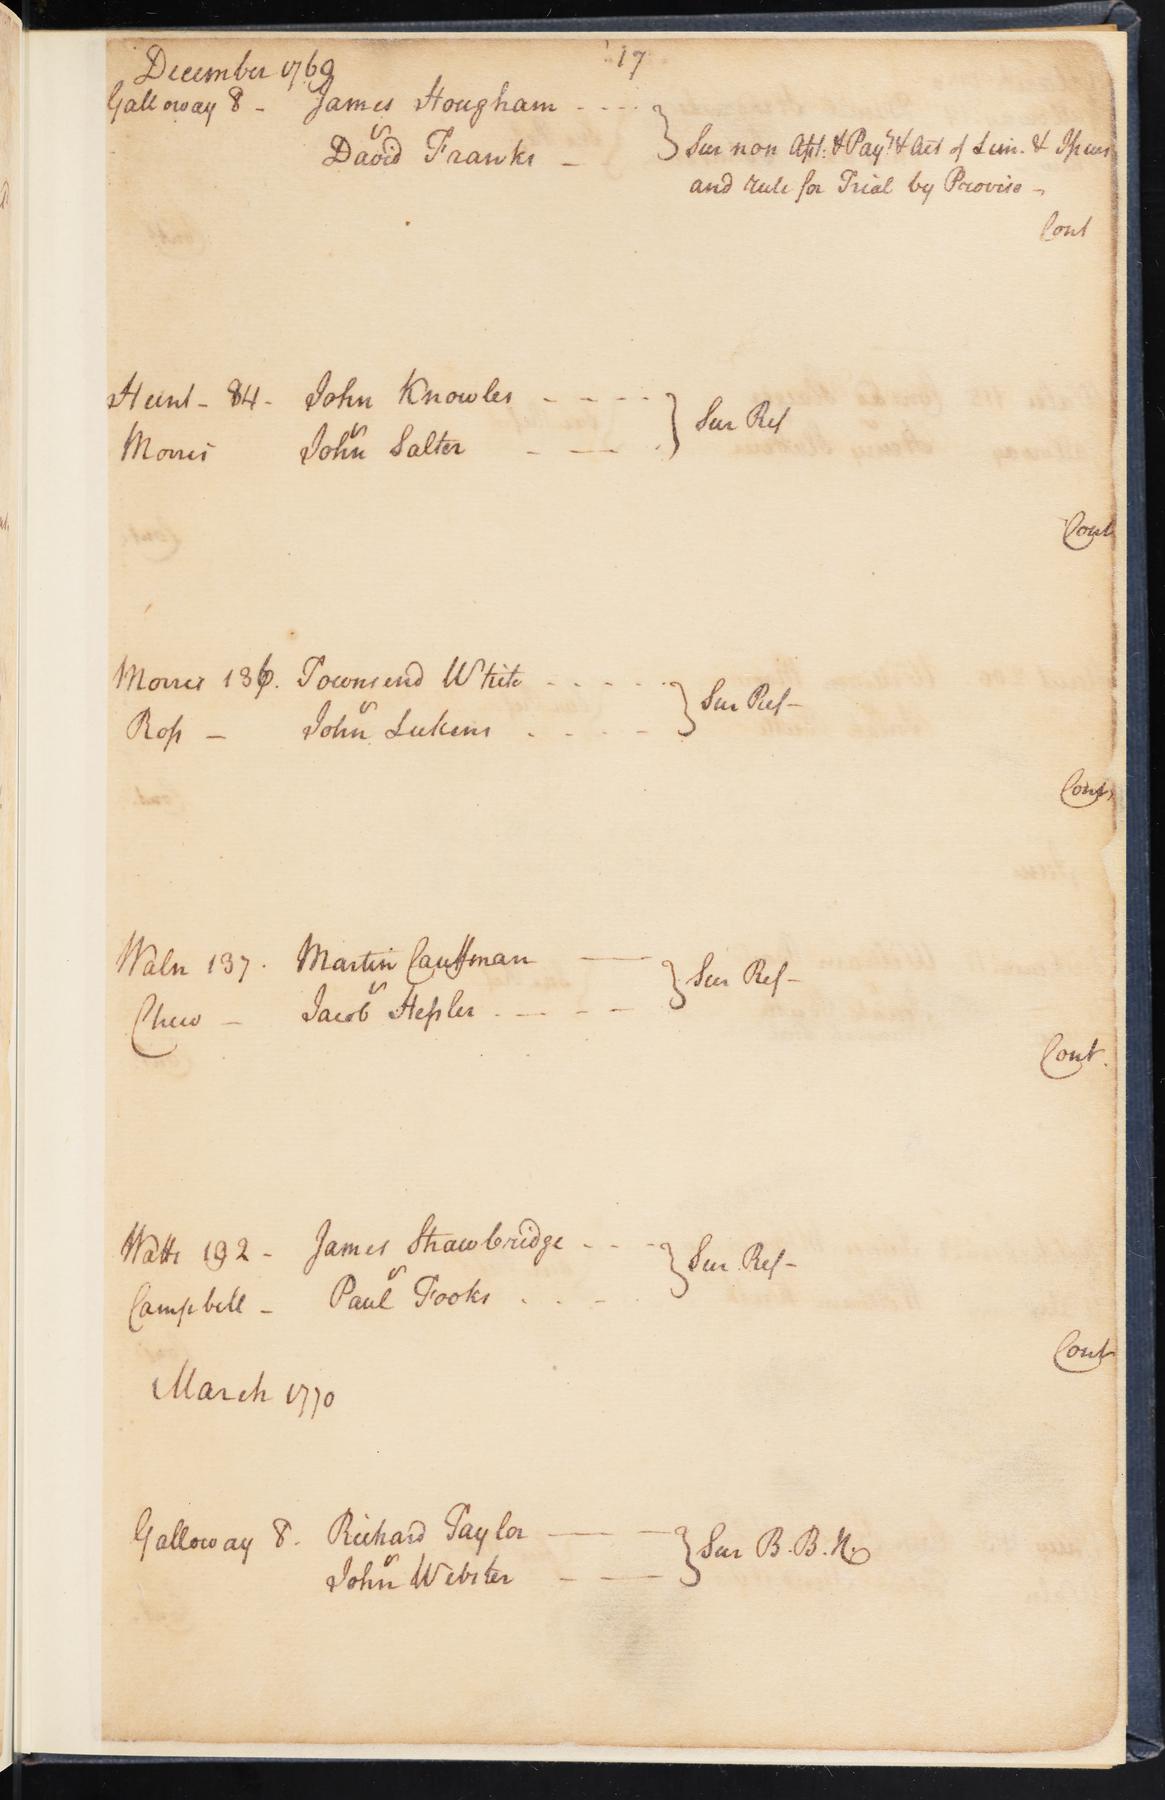 December 1769
17
Galloway 8 - James Hougham - - - -
vs
David Franks -
} Sur non Ass: & Pay.t & Act of Lim. & Issues
and rule for Trial by Proviso -
Cont
Hunt - 84 - John Knowles - - - - } Sur Ref
vs
Morris John Salter - - -
Cont
Morris 136. Townsend White - - - - - } Sur Ref -
vs
Ross - John Lukens - - - -
Cont
Waln 137. Martin Cauffman - } Sur Ref -
vs
Chew - Jacob Hesler - - - -
Cont.
Watts 192 - James Strawbridge - - - } Sur Ref -
vs
Campbell - Paul Fooks - - -
Cont
March 1770
Galloway 8. Richard Taylor - - } Sur B. B. N.
vs
John Webster - -